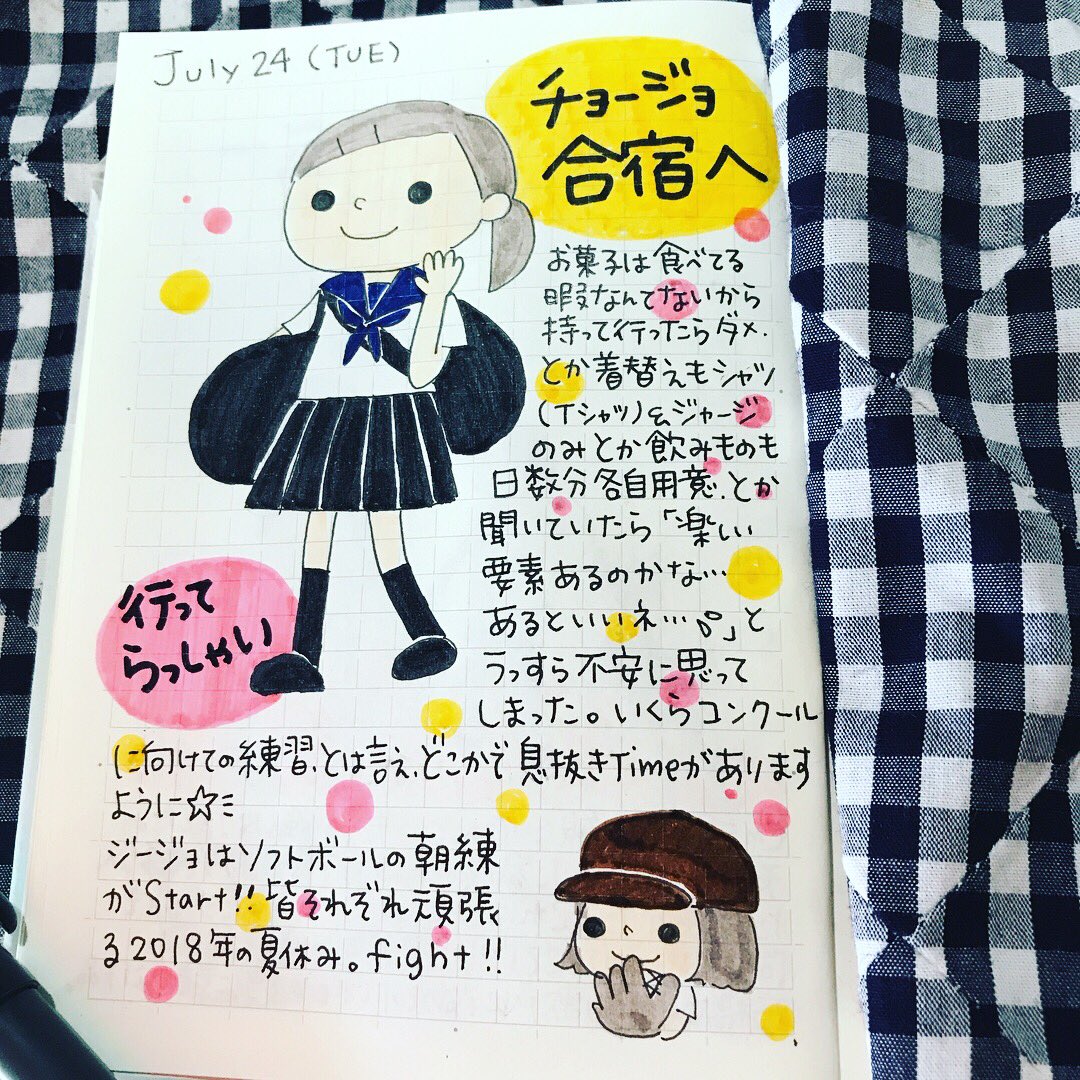 July 24 (TUE)
チョージョ
合宿へ
お菓子は食べてる
暇なんてないから
持って行ったらダメ.
とか着替えもシャツ
(Tシャツ)&ジャージ
のみとか飲みものも
日数分各自用意、とか
聞いていたら「楽しい
要素あるのかな…
あるといいネ…。」と
うっすら不安に思って
しまった。いくらコンクール
に向けての練習、とは言え、どこかで息抜きTimeがあります
ように☆ミ
ジージョはソフトボールの朝練
がStart!!皆それぞれ頑張
る2018年の夏休み。fight!!
行って
らっしゃい